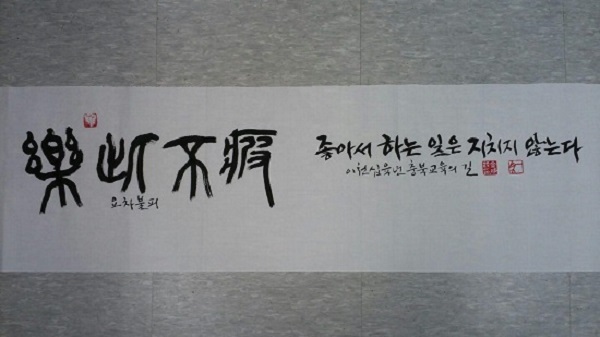 樂此不疲
요차불피
좋아서 하는 일은 지치지 않는다
이천십육년 충북교육의 길